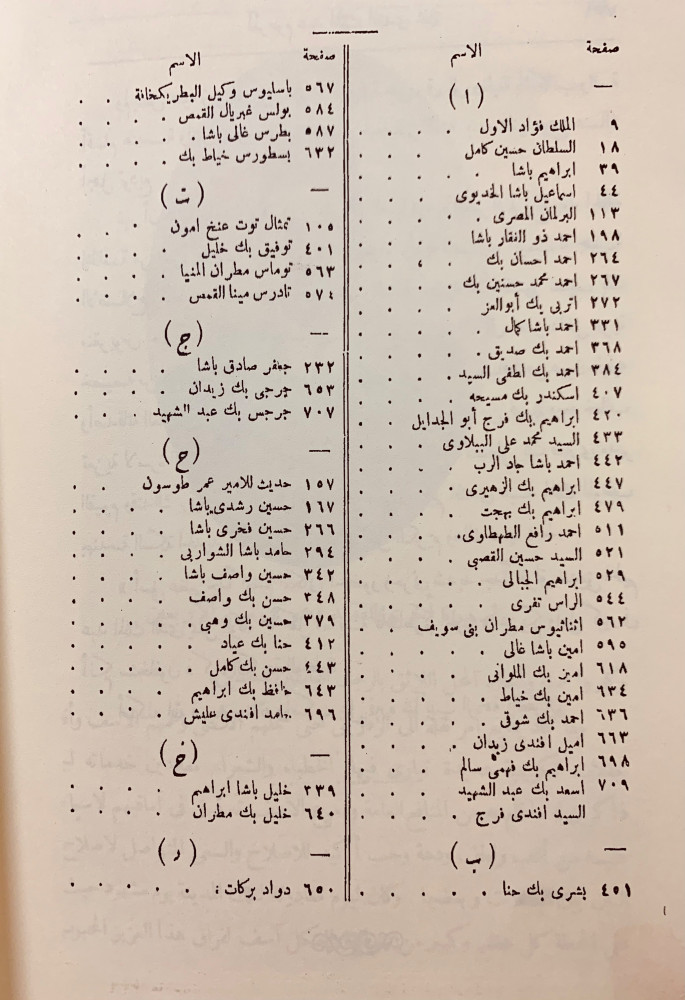 صفحة الاسم
— (ا)
٩ الملك فؤاد الاول
١٨ السلطان حسين كامل
٣٩ ابراهيم باشا
٤٤ اسماعيل باشا الخديوى
١١٣ البرلمان المصرى
١٩٨ احمد ذو الفقار باشا
٢٦٤ احمد احسان بك
٢٦٧ احمد محمد حسنين بك
٢٧٢ اتربى بك أبو العز
٣٣١ احمد باشا كمال
٣٦٨ احمد بك صديق
٣٨٤ احمد بك لطفى السيد
٤٠٧ اسكندر بك مسيحه
٤٢٠ ابراهيم بك فرج أبو الجدايل
٤٣٣ السيد محمد على الببلاوى
٤٤٢ احمد باشا جاد الرب
٤٤٧ ابراهيم بك الزهيرى
٤٧٩ ابراهيم بك بهجت
٥١١ احمد رافع الطهطاوى
٥٢١ السيد حسين القصبى
٥٢٩ ابراهيم الجبالى
٥٤٤ الراس تفرى
٥٦٢ اثناثيوس مطران بنى سويف
٥٩٥ امين باشا غالى
٦١٨ امين بك الملوانى
٦٣٤ امين بك خياط
٦٣٦ احمد بك شوقى
٦٦٣ اميل افندى زيدان
٦٩٨ ابراهيم بك فهمى سالم
٧٠٩ اسعد بك عبد الشهيد
السيد افندى فرج
— (ب)
٤٥١ بشرى بك حنا
صفحة الاسم
٥٦٧ باسليوس وكيل البطريكخانة
٥٨٤ بولس غبريال القمص
٥٨٧ بطرس غالى باشا
٦٣٢ بسطورس خياط بك
— (ت)
١٠٥ تمثال توت عنخ امون
٤٠١ توفيق بك خليل
٥٦٣ توماس مطران المنيا
٥٧٤ تادرس مينا القمص
— (ج)
٢٣٢ جعفر صادق باشا
٦٥٣ جرجى بك زيدان
٧٠٧ جرجس بك عبد الشهيد
— (ح)
١٥٧ حديث للامير عمر طوسون
١٦٧ حسين رشدى باشا
٢٦٦ حسين فخرى باشا
٢٩٤ حامد باشا الشواربى
٣٤٢ حسين واصف باشا
٣٤٨ حسن بك واصف
٣٧٩ حسين بك وهبى
٤١٢ حنا بك عياد
٤٤٣ حسن بك كامل
٦٤٣ حافظ بك ابراهيم
٦٩٦ حامد افندى عليش
— (خ)
٣٣٩ خليل باشا ابراهيم
٦٤٠ خليل بك مطران
— (د)
٦٥٠ دواد بركات